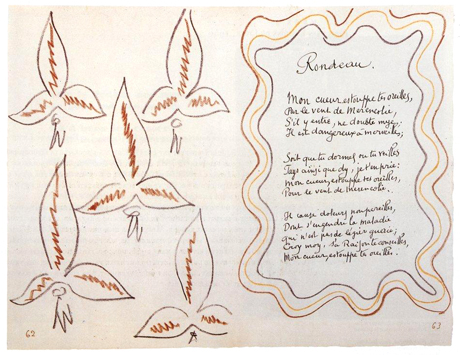 Rondeau.
Mon cueur estouppe tes oreilles,
Pour le vent de Merencolie,
S'il y entre, ne doubte mye,
Il est dangereux à merveilles;
Soit que tu dormes ou tu veilles
Fays ainsi que dy, je t'en prie:
Mon cueur estoupe tes oreilles,
Pour le vent de merencolie.
Il cause doleurs nonpareilles,
Dont s'engendre la maladie
qui n'est pas de légier guerie;
Croy moy, s'a Raison te conseilles,
Mon cueur estouppe tes oreilles.
62
63